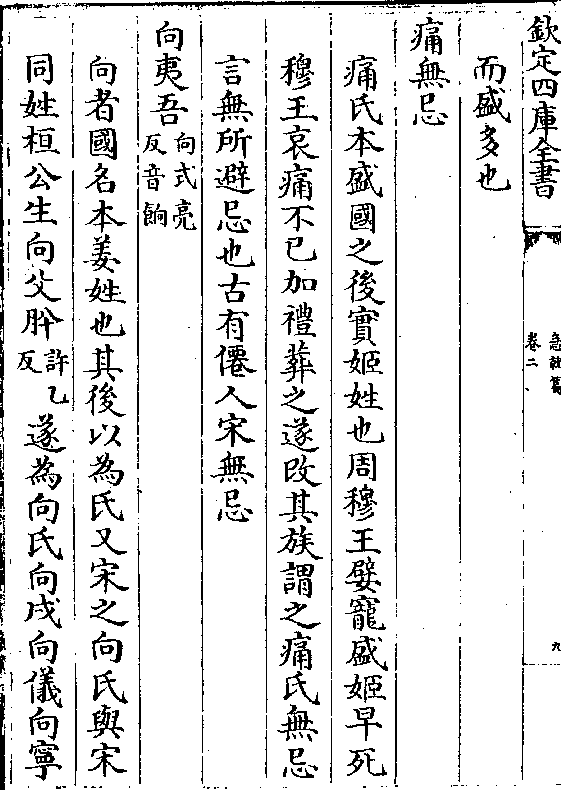 欽定四庫全書
急就篇
卷二
九
而盛多也
痛無忌
痛氏本盛國之後實姬姓也周穆王嬖寵盛姬早死
穆王哀痛不已加禮葬之遂改其族謂之痛氏無忌
言無所避忌也古有僊人宋無忌
向夷吾向式亮反音餉
向者國名本姜姓也其後以為氏又宋之向氏與宋
同姓桓公生向父肸許乙反遂為向氏向戌向儀向寧